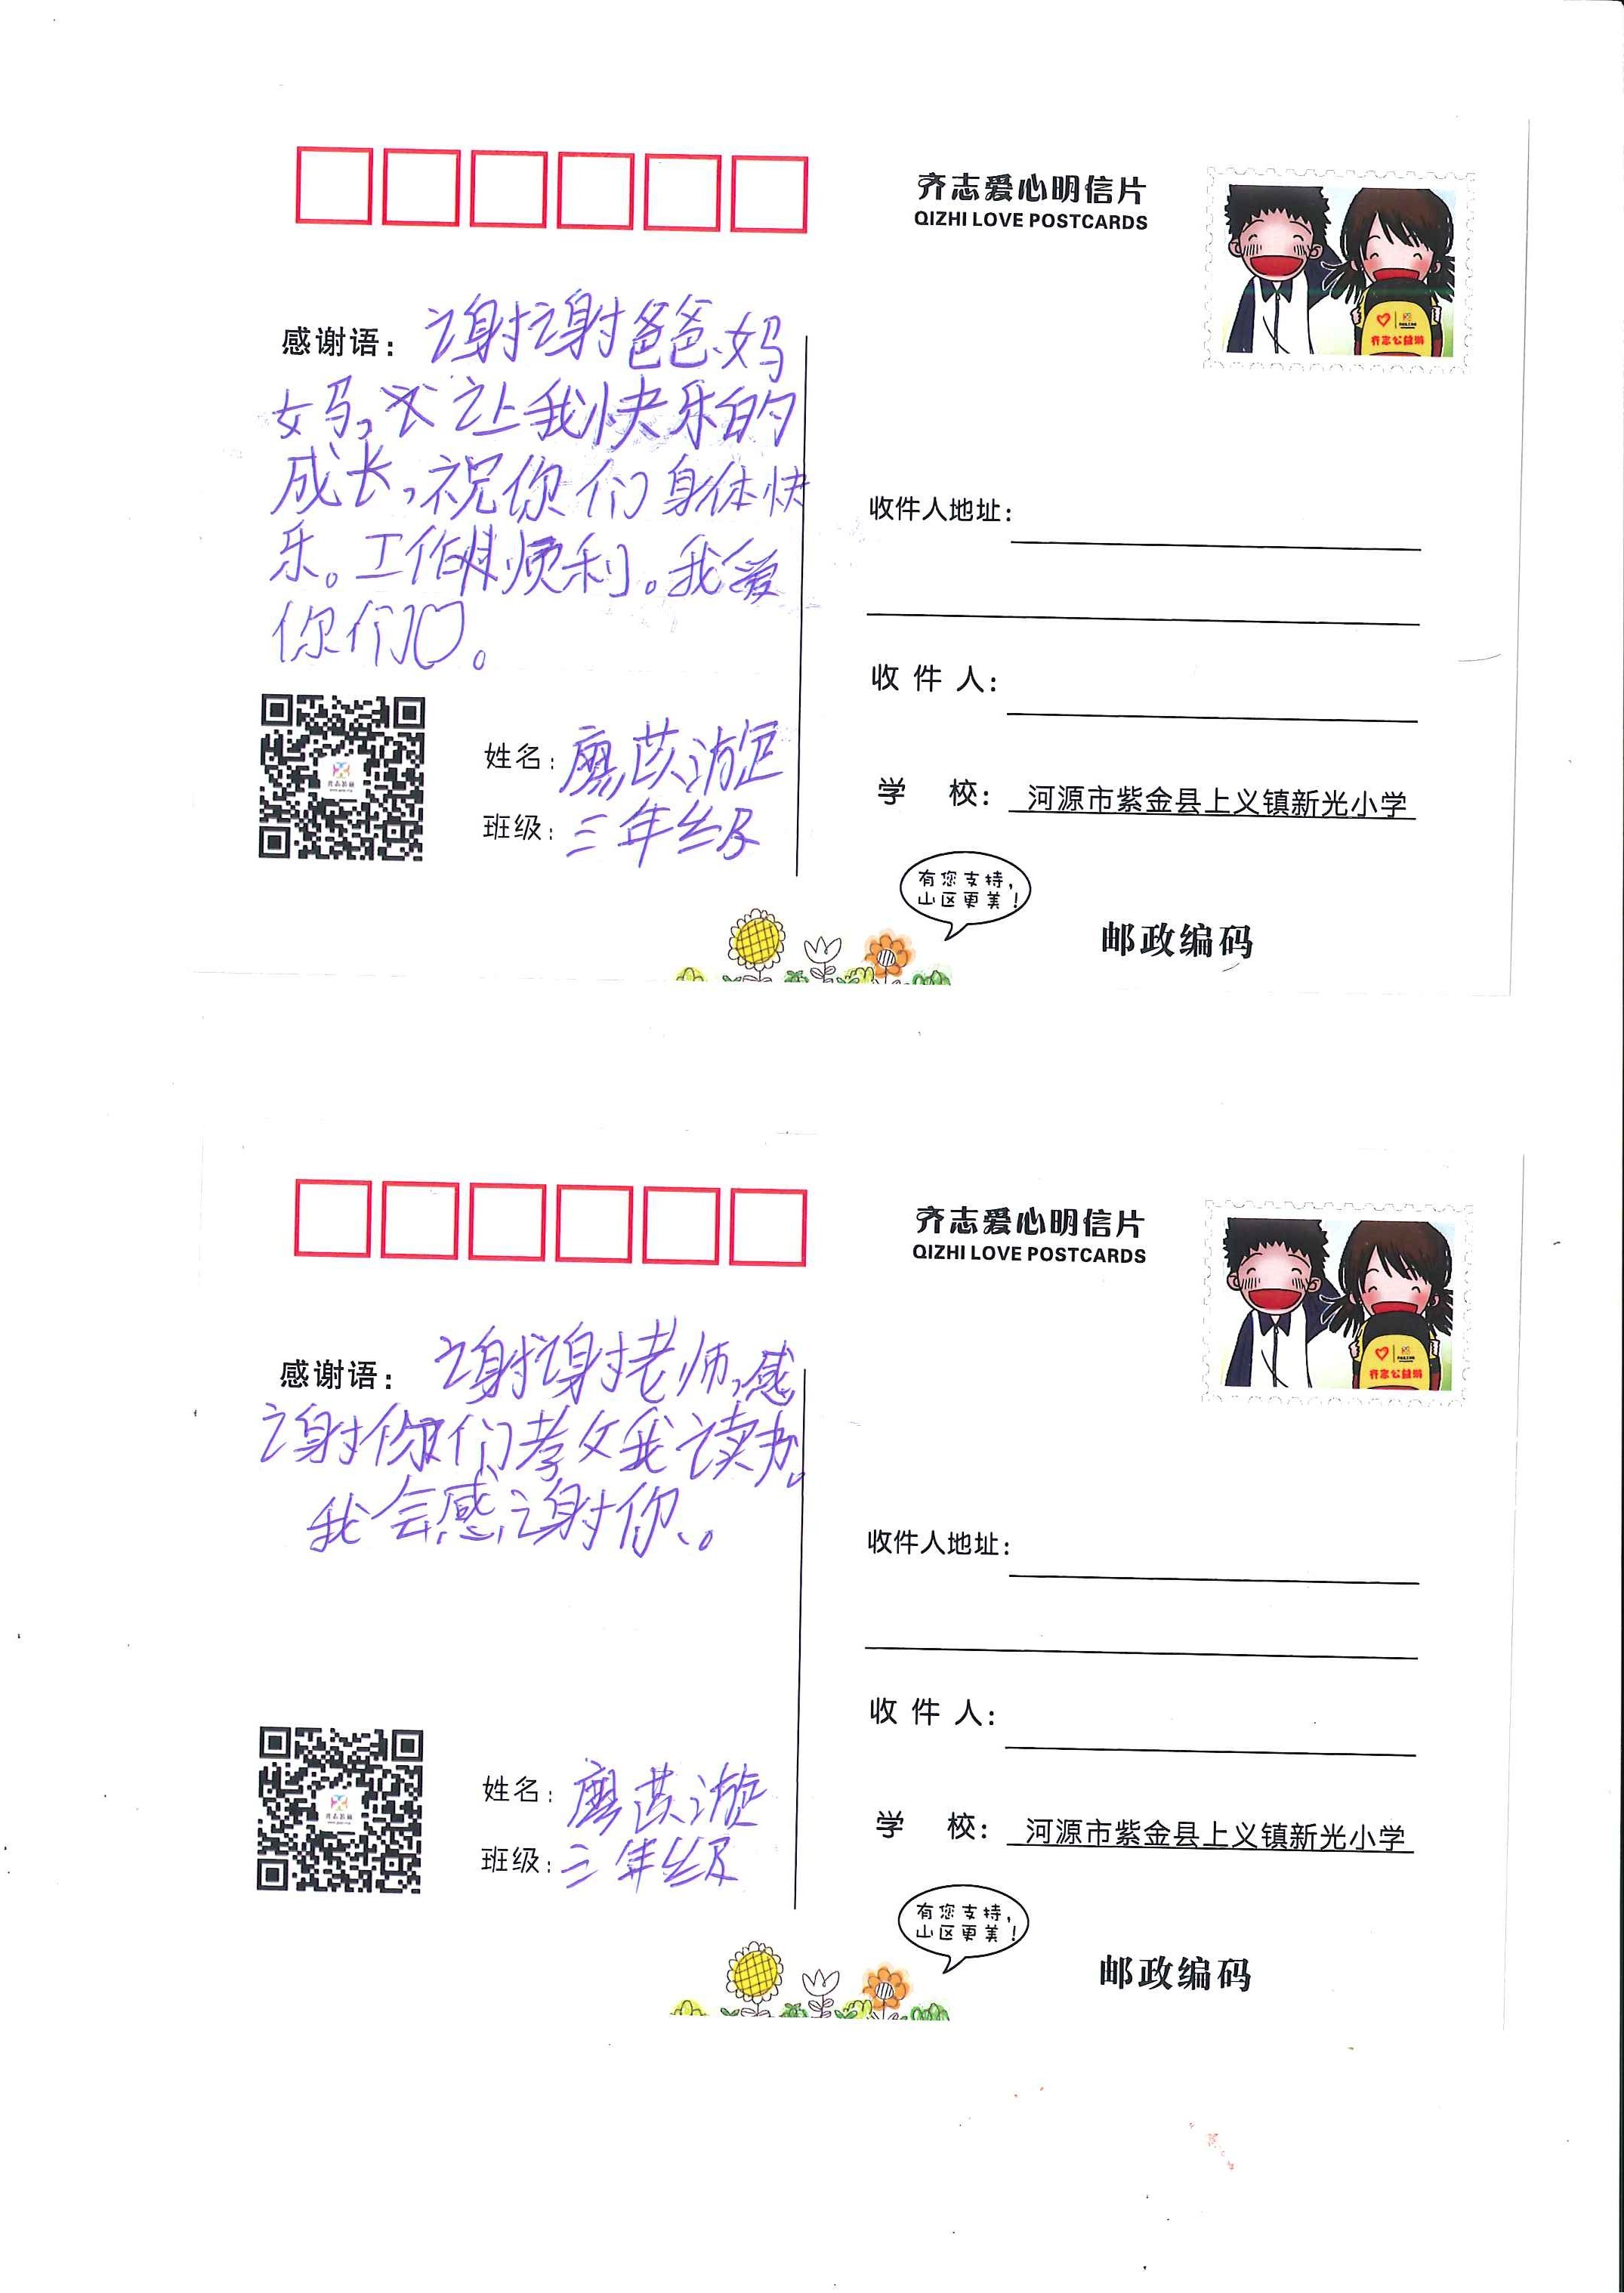 齐志爱心明信片
QIZHI LOVE POSTCARDS
齐志公益
感谢语：谢谢爸爸、妈
妈，让我快乐的
成长，祝你们身体快
乐。工作顺利。我爱
你们♡。
收件人地址：
收件人：
姓名：廖苡漩
班级：三年级
学 校：河源市紫金县上义镇新光小学
有您支持，
山区更美！
邮政编码
齐志爱心明信片
QIZHI LOVE POSTCARDS
齐志公益
感谢语：谢谢老师，感
谢你们教我读书。
我会感谢你、。
收件人地址：
收件人：
姓名：廖苡漩
班级：三年级
学 校：河源市紫金县上义镇新光小学
有您支持，
山区更美！
邮政编码